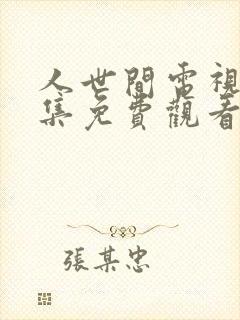 人世間電視
集免費觀看
張某忠